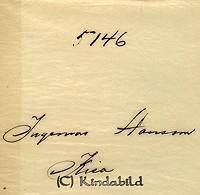 5146
Ingemar Hansson
Kisa
(C) Kindabild